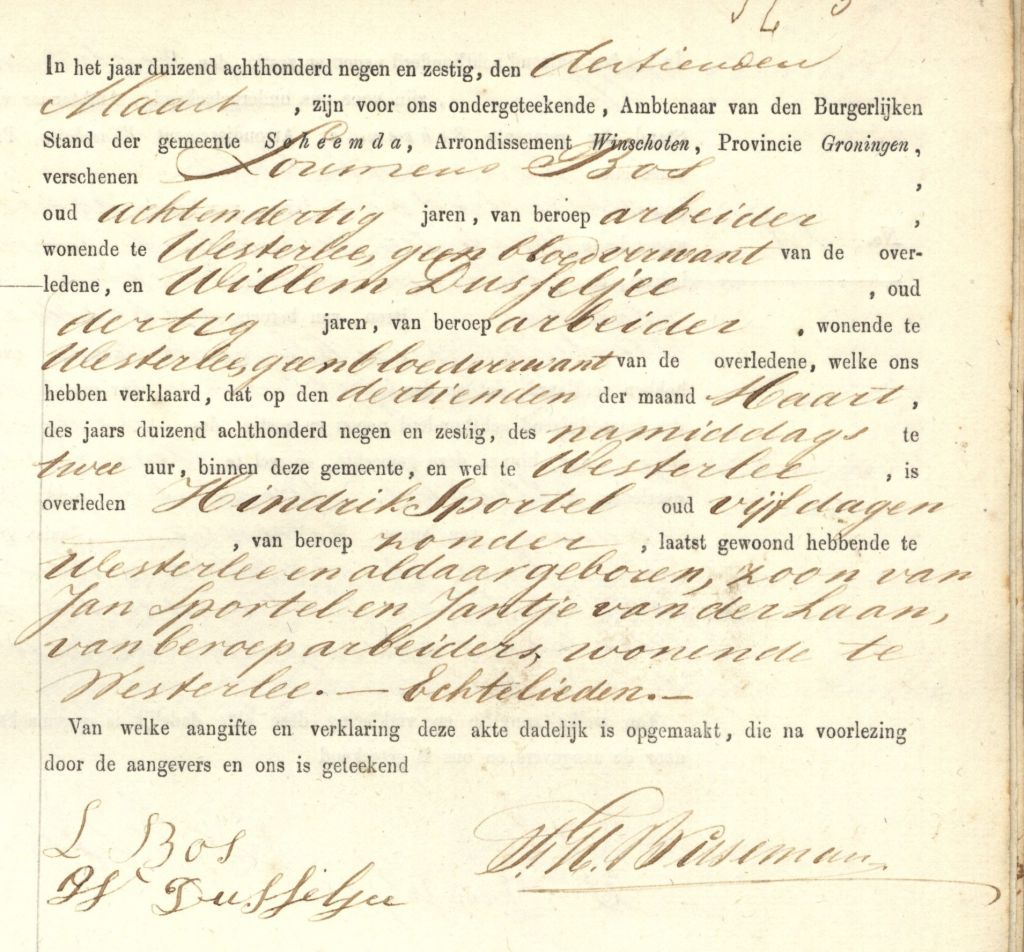 In het jaar duizend achthonderd negen en zestig, den dertienden
Maart , zijn voor ons ondergeteekende, Ambtenaar van den Burgerlijken
Stand der gemeente Scheemda, Arrondissement Winschoten, Provincie Groningen,
verschenen Lourrens Bos ,
oud achtendertig jaren, van beroep arbeider ,
wonende te Westerlee, geen bloedverwant van de over-
ledene, en Willem Dusseljee , oud
dertig jaren, van beroep arbeider , wonende te
Westerlee, geen bloedverwant van de overledene, welke ons
hebben verklaard, dat op den dertienden der maand Maart,
des jaars duizend achthonderd negen en zestig, des namiddags te
twee uur, binnen deze gemeente, en wel te Westerlee , is
overleden Hindrik Sportel oud vijf dagen
, van beroep zonder , laatst gewoond hebbende te
Westerlee en aldaar geboren, zoon van
Jan Sportel en Jantje van der Laan,
van beroep arbeiders, wonende te
Westerlee. — Echtelieden. —
Van welke aangifte en verklaring deze akte dadelijk is opgemaakt, die na voorlezing
door de aangevers en ons is geteekend
L Bos
W Dusseljee